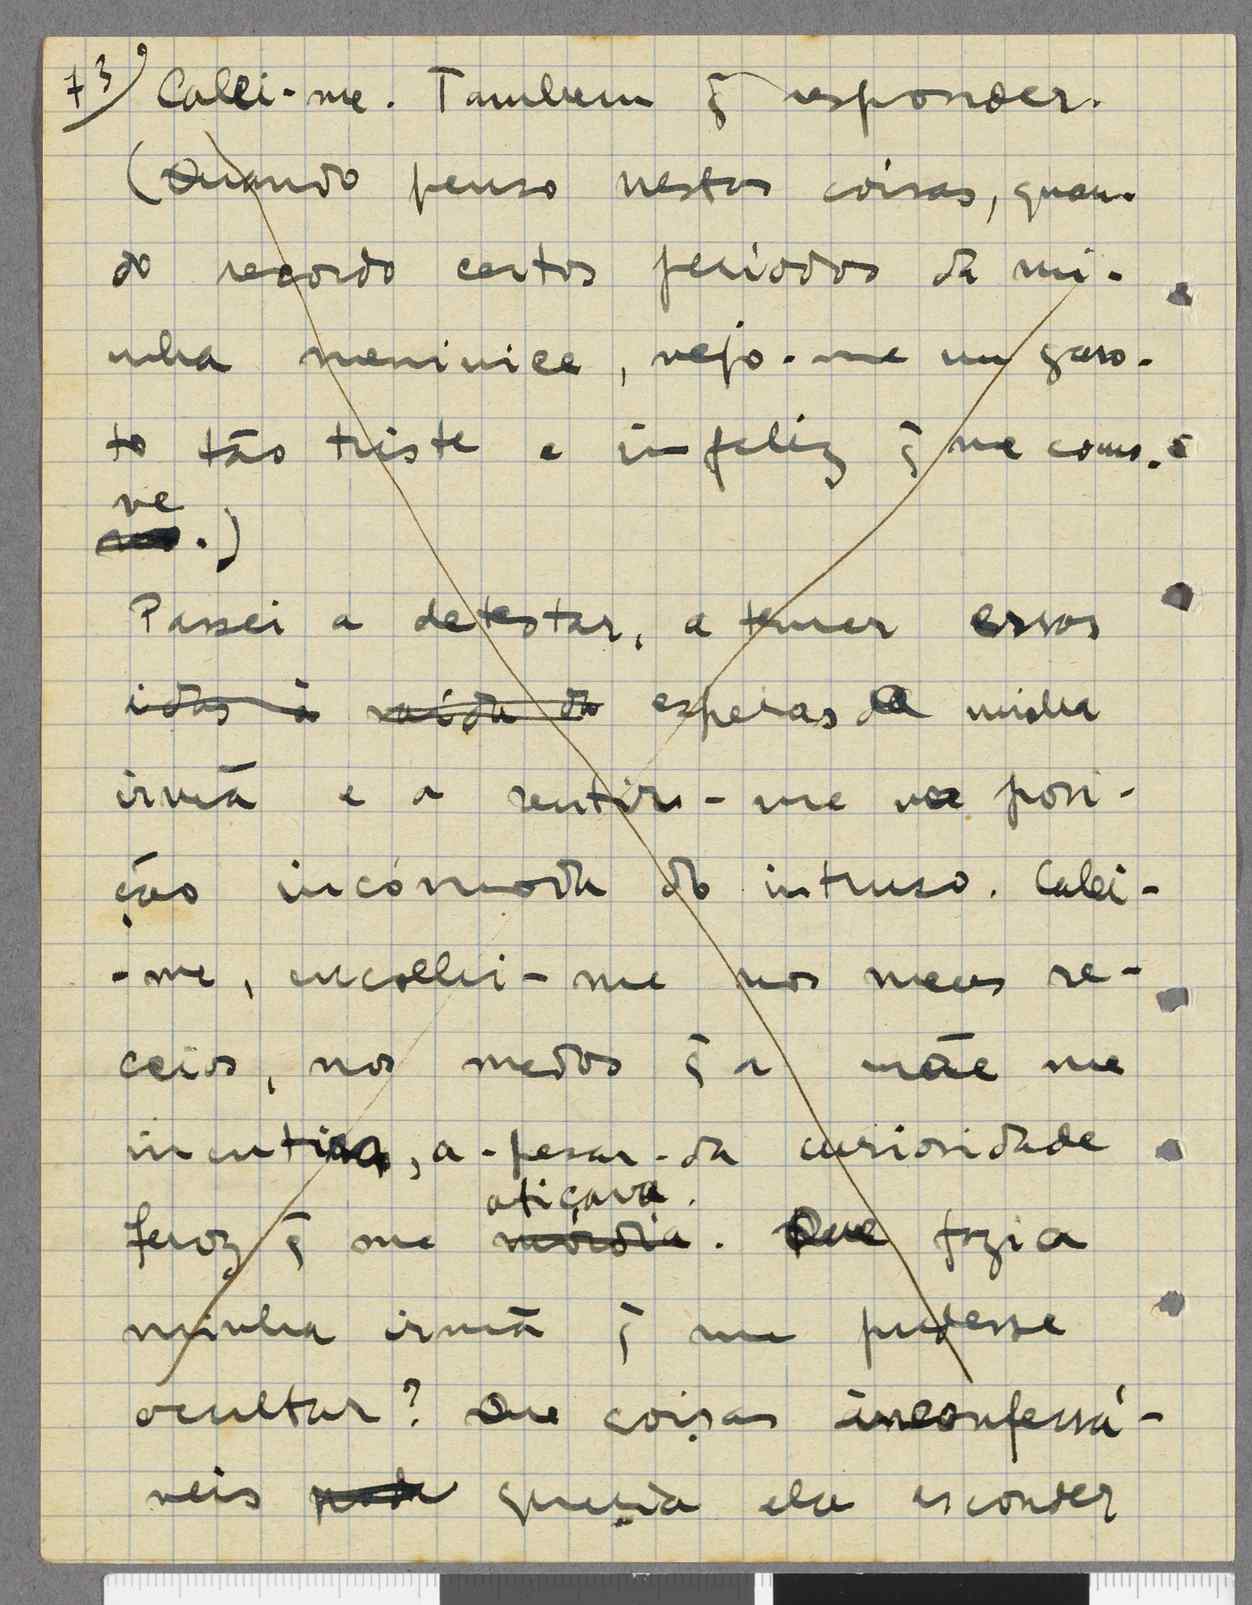 73) Calei-me. Tambem q̃ responder.
(Quando penso nestas coisas, quan-
do recordo certos periodos da mi-
nha meninice, vejo-me um garo-
to tão triste e infeliz q̃ me como-
ve
.)
Passei a detestar, a temer essas
idas à saída da esperas da minha
irmã e a sentir-me na posi-
ção incómoda do intruso. Calei-
-me, encolhi-me nos meus re-
ceios, nos medos q̃ a mãe me
incutira, a-pesar-da curiosidade
atiçava.
feroz q̃ me mordia. Que fazia
minha irmã q̃ me pudesse
ocultar? Que coisas inconfessá-
veis pode queria ela esconder